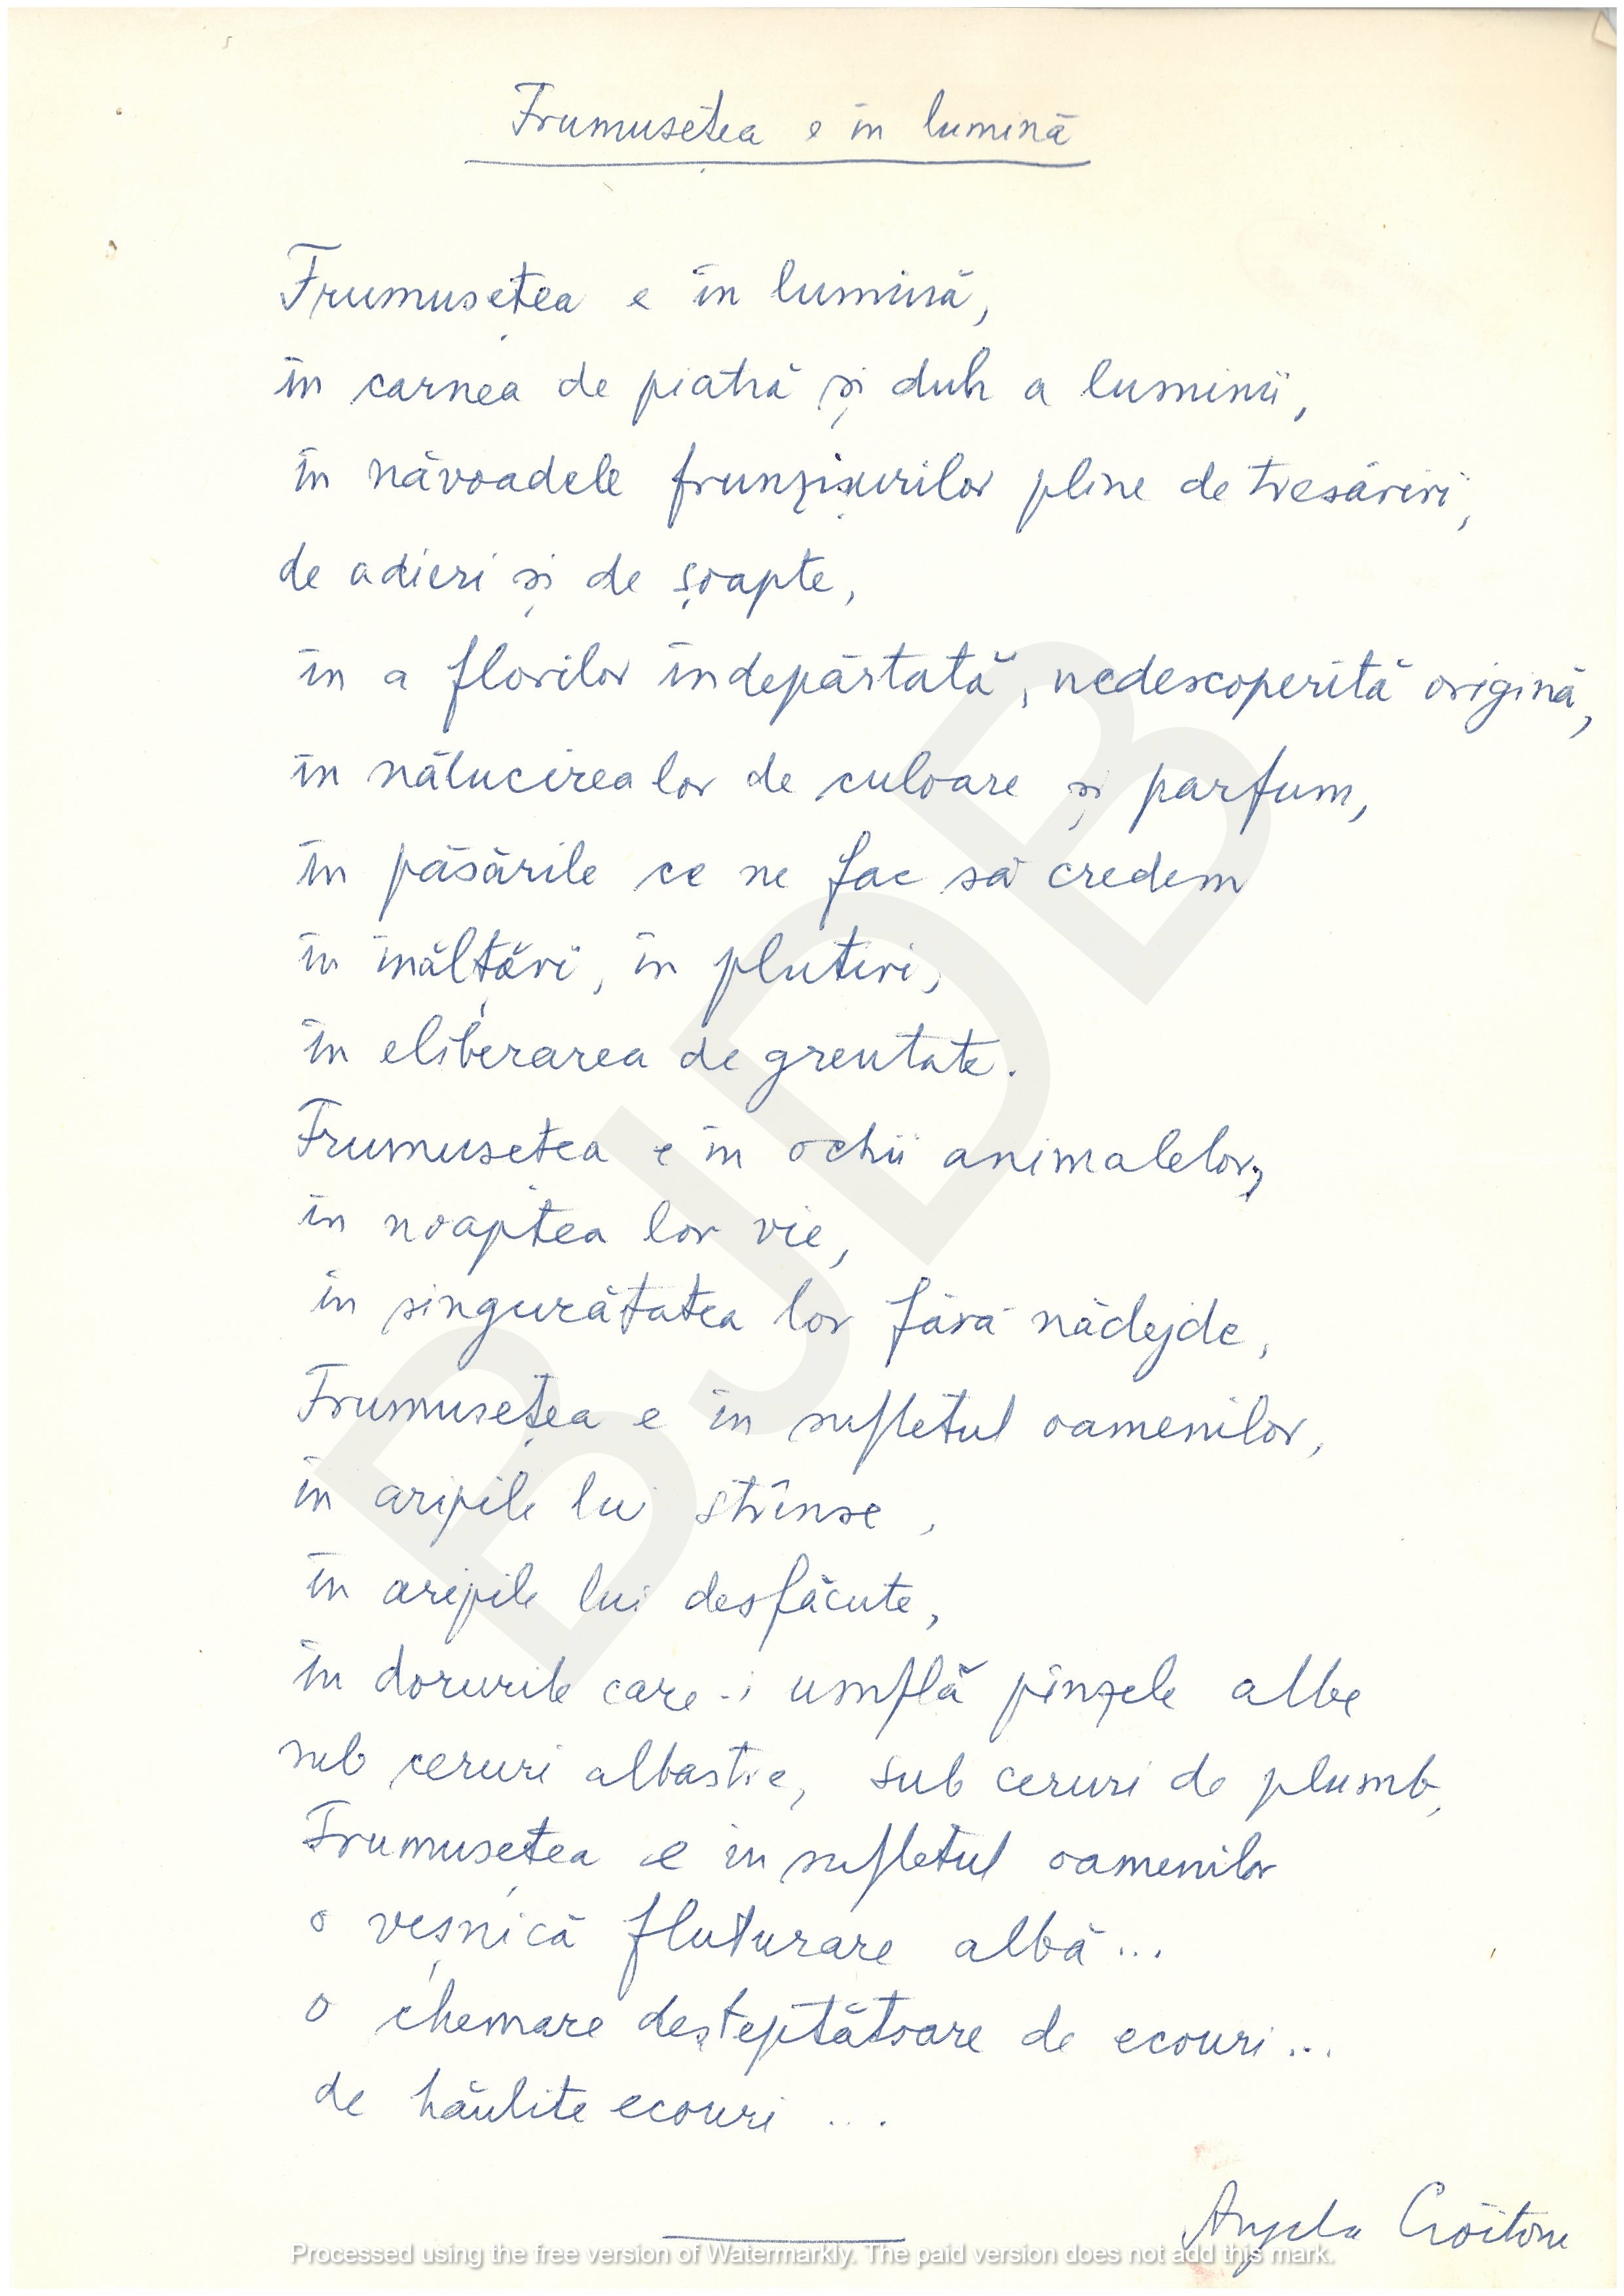 Frumusețea e în lumină
Frumusețea e în lumină,
în carnea de piatră și duh a luminii,
în năvoadele frunzișurilor pline de tresăriri,
de adieri și de șoapte,
în a florilor îndepărtată, nedescoperită origină,
în nălucirea lor de culoare și parfum,
în păsările ce ne fac să credem
în înălțări, în plutiri,
în eliberarea de greutate.
Frumusețea e în ochii animalelor,
în noaptea lor vie,
în singurătatea lor fără nădejde,
Frumusețea e în sufletul oamenilor,
în aripile lui strînse,
în aripile lui desfăcute,
în dorurile care-i umflă pînzele albe
sub ceruri albastre, sub ceruri de plumb,
Frumusețea e în sufletul oamenilor
o veșnică fluturare albă...
o chemare deșteptătoare de ecouri...
de hăulite ecouri ...
Angela Croitoru
BJDB
Processed using the free version of Watermarkly. The paid version does not add this mark.